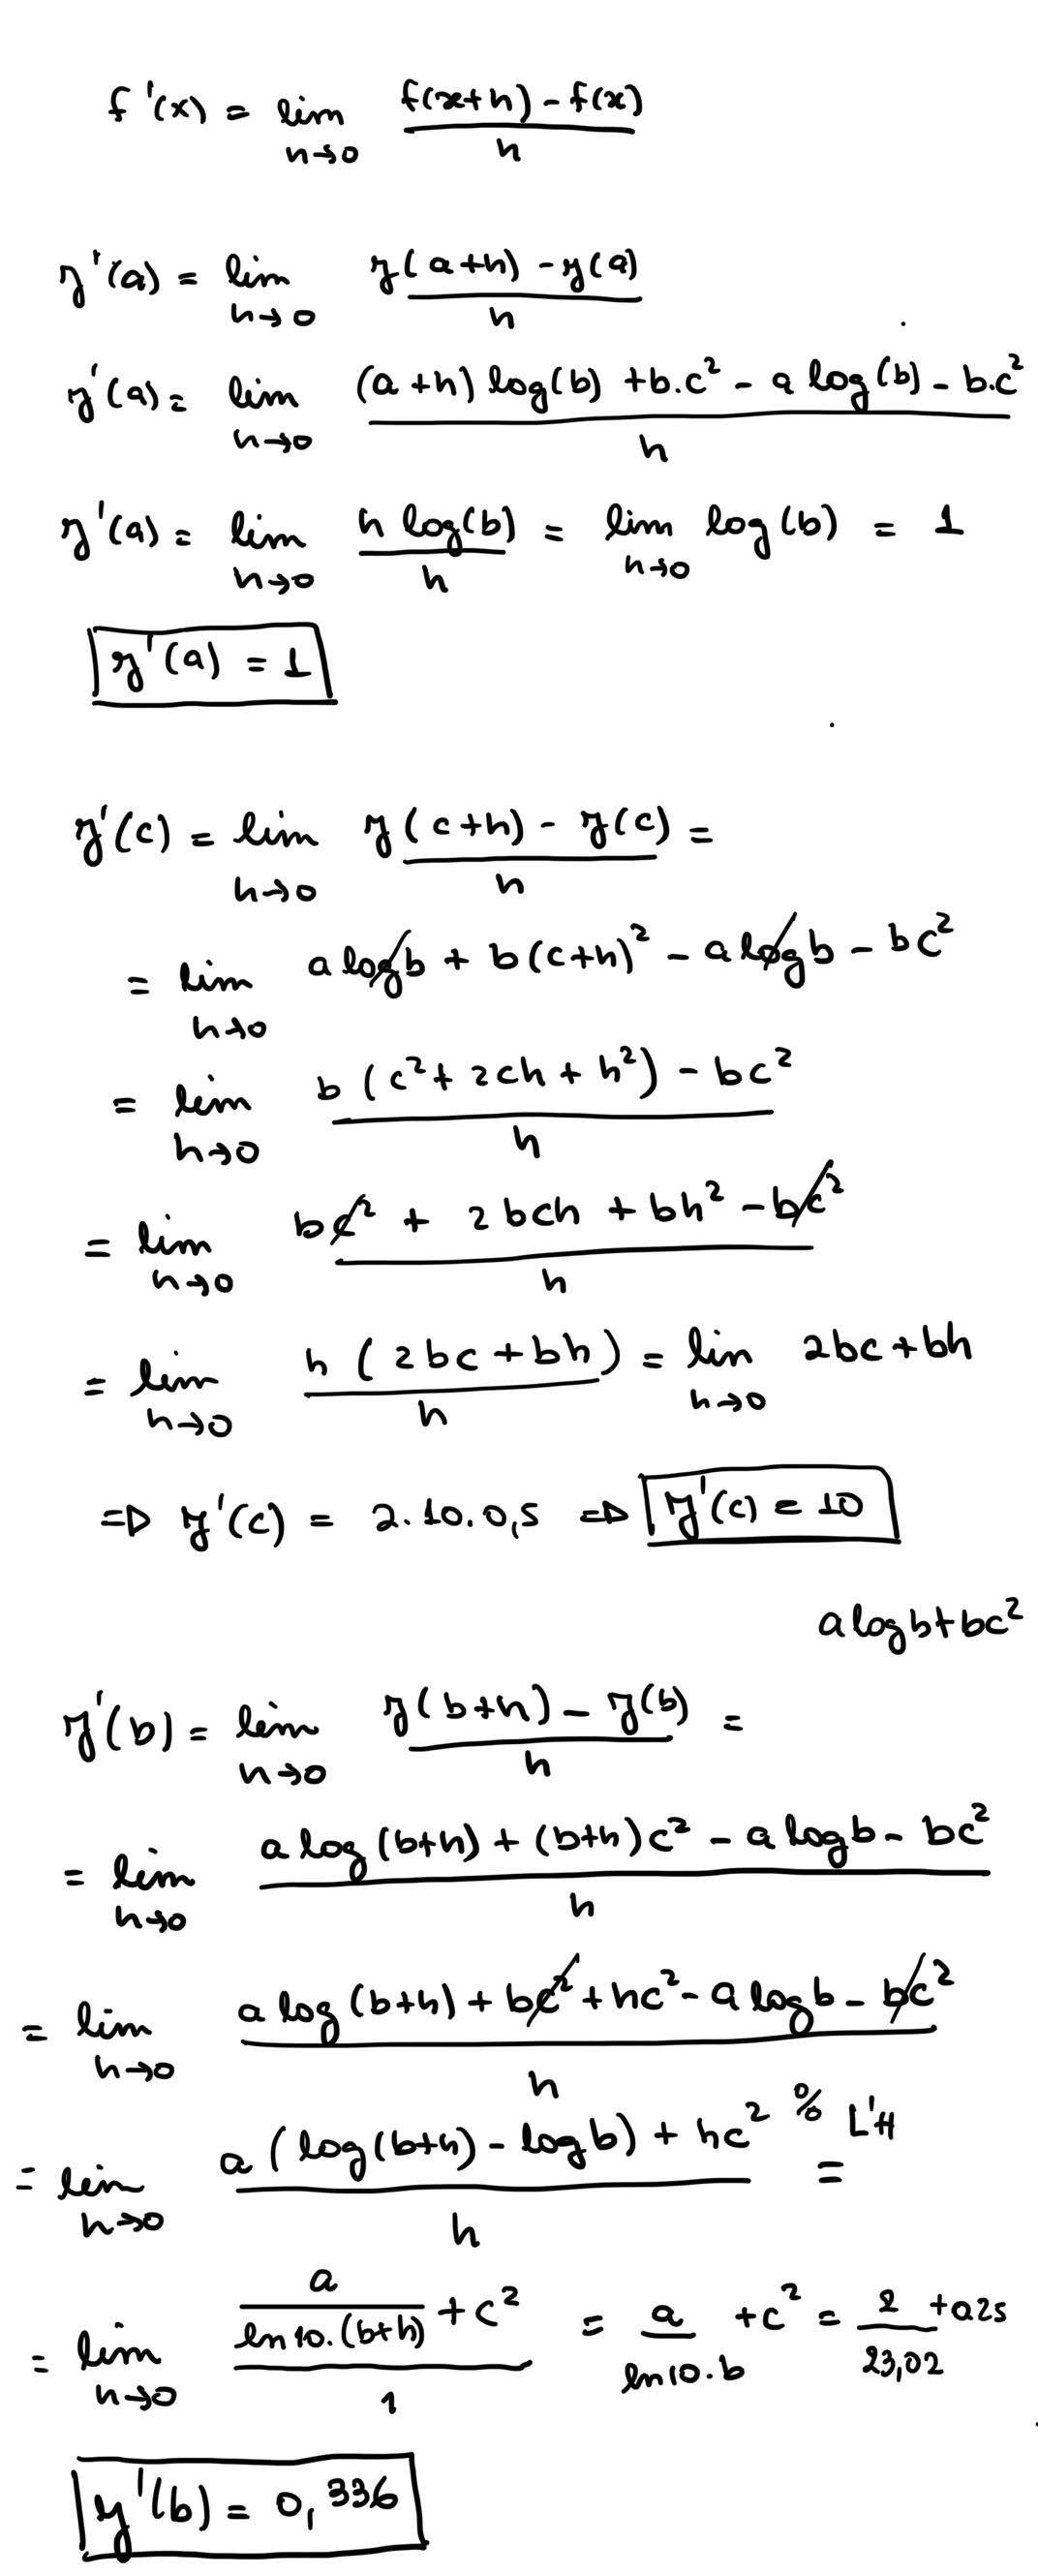 f'(x) = lim h→0 f(x+h) - f(x) / h
y'(a) = lim h→0 y(a+h) - y(a) / h
y'(a) = lim h→0 (a+h) log(b) + b.c² - a log(b) - b.c² / h
y'(a) = lim h→0 h log(b) / h = lim h→0 log(b) = 1
y'(a) = 1
y'(c) = lim h→0 y(c+h) - y(c) / h =
= lim h→0 a log b + b(c+h)² - a log b - bc²
= lim h→0 b(c² + 2ch + h²) - bc² / h
= lim h→0 bc² + 2bch + bh² - bc² / h
= lim h→0 h(2bc + bh) / h = lim h→0 2bc + bh
⇒ y'(c) = 2.10.0,5 ⇒ y'(c) = 10
a log b + bc²
y'(b) = lim h→0 y(b+h) - y(b) / h =
= lim h→0 a log(b+h) + (b+h)c² - a log b - bc² / h
= lim h→0 a log(b+h) + bc² + hc² - a log b - bc² / h
= lim h→0 a(log(b+h) - log b) + hc² / h 0/0 L'H =
= lim h→0 a / ln10.(b+h) + c² / 1 = a / ln10.b + c² = 2 / 23,02 + 0,25
y'(b) = 0,336